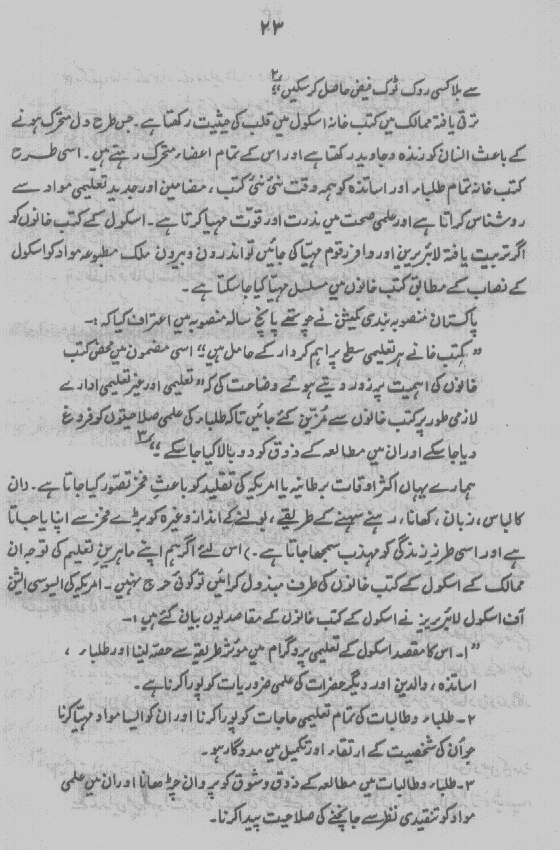 ۲۳
سے بلا کسی روک ٹوک فیض حاصل کر سکیں"۲
ترقی یافتہ ممالک میں کتب خانہ اسکول میں قلب کی حیثیت رکھتا ہے۔ جس طرح دل متحرک ہونے
کے باعث انسان کو زندہ و جاوید رکھتا ہے اور اس کے تمام اعضاء متحرک رہتے ہیں۔ اسی طرح
کتب خانہ تمام طلباء اور اساتذہ کو ہمہ وقت نئی نئی کتب، مضامین اور جدید تعلیمی مواد سے
روشناس کراتا ہے اور علمی صحت میں ندرت اور قوت مہیا کرتا ہے۔ اسکول کے کتب خانوں کو
اگر تربیت یافتہ لائبریرین اور وافر رقوم مہیا کی جائیں تو اندرون و بیرون ملک مطبوعہ مواد کو اسکول
کے نصاب کے مطابق کتب خانوں میں مسلسل مہیا کیا جا سکتا ہے۔
پاکستان منصوبہ بندی کمیشن نے چوتھے پانچ سالہ منصوبہ میں اعتراف کیا کہ:۔
"کتب خانے ہر تعلیمی سطح پر اہم کردار کے حامل ہیں" اسی مضمون میں محض کتب
خانوں کی اہمیت پر زور دیتے ہوئے وضاحت کی کہ "تعلیمی اور غیر تعلیمی ادارے
لازمی طور پر کتب خانوں سے مُزیّن کئے جائیں تاکہ طلباء کی علمی صلاحیتوں کو فروغ
دیا جا سکے اور ان میں مطالعہ کے ذوق کو دوبالا کیا جا سکے"۳
ہمارے یہاں اکثر اوقات برطانیہ یا امریکہ کی تقلید کو باعثِ فخر تصوّر کیا جاتا ہے۔ (ان
کا لباس، زبان، کھانا، رہنے سہنے کے طریقے، بولنے کے انداز وغیرہ کو بڑے فخر سے اپنایا جاتا
ہے اور اسی طرزِ زندگی کو مہذب سمجھا جاتا ہے۔) اس لئے اگر ہم اپنے ماہرینِ تعلیم کی توجہ ان
ممالک کے اسکول کے کتب خانوں کی طرف مبذول کرائیں تو کوئی حرج نہیں۔ امریکہ کی ایسوسی ایشن
آف اسکول لائبریریز نے اسکول کے کتب خانوں کے مقاصد یوں بیان کئے ہیں:۔
"۱۔ اس کا مقصد اسکول کے تعلیمی پروگرام میں موثر طریقہ سے حصّہ لینا اور طلباء،
اساتذہ، والدین اور دیگر حضرات کی علمی ضروریات کو پورا کرنا ہے۔
۲۔ طلباء و طالبات کی تمام تعلیمی حاجات کو پورا کرنا اور ان کو ایسا مواد مہیّا کرنا
جو اُن کی شخصیت کے ارتقاء اور تکمیل میں مددگار ہو۔
۳۔ طلباء و طالبات میں مطالعہ کے ذوق و شوق کو پروان چڑھانا اور ان میں علمی
مواد کو تنقیدی نظر سے جانچنے کی صلاحیت پیدا کرنا۔